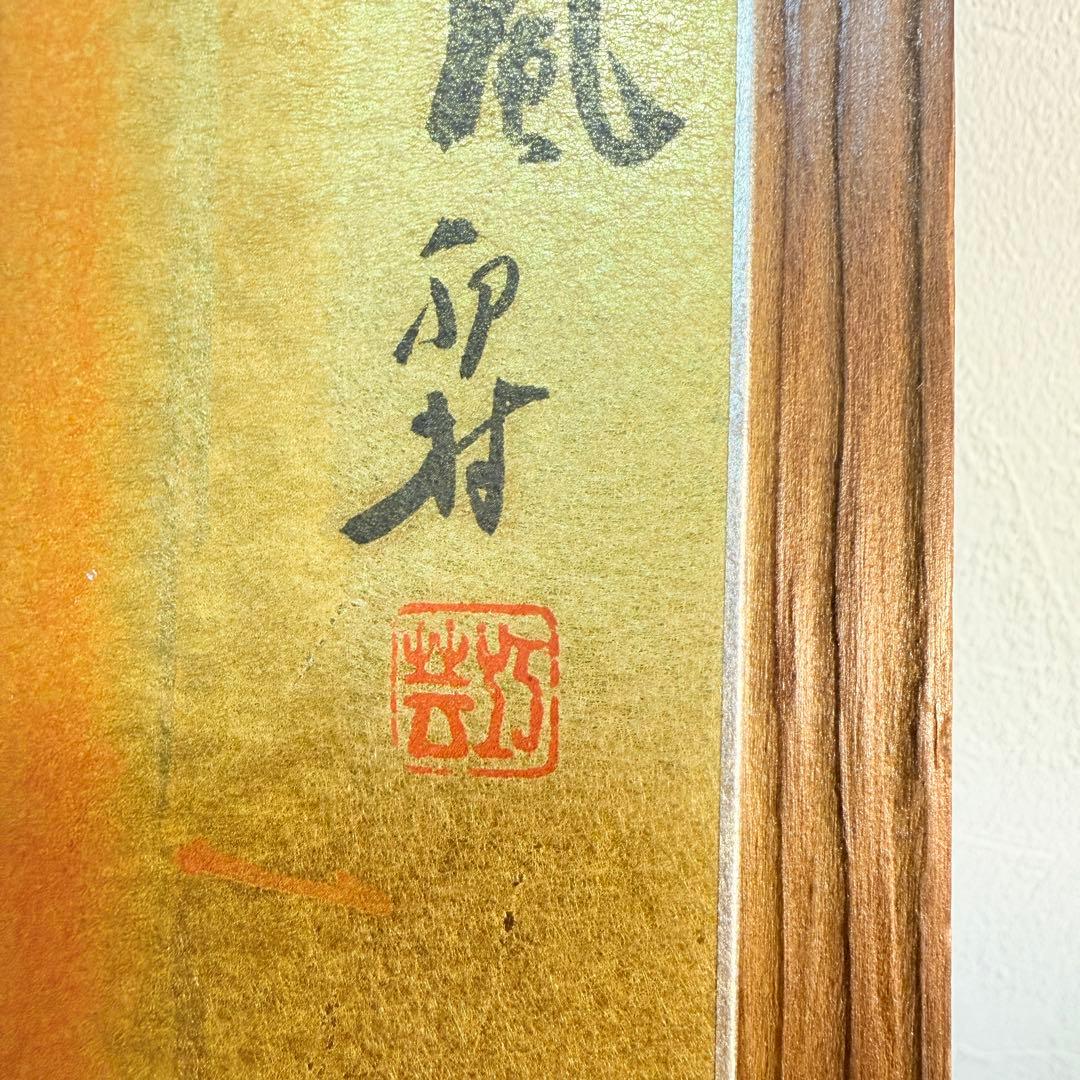 風
卯村
巧芸